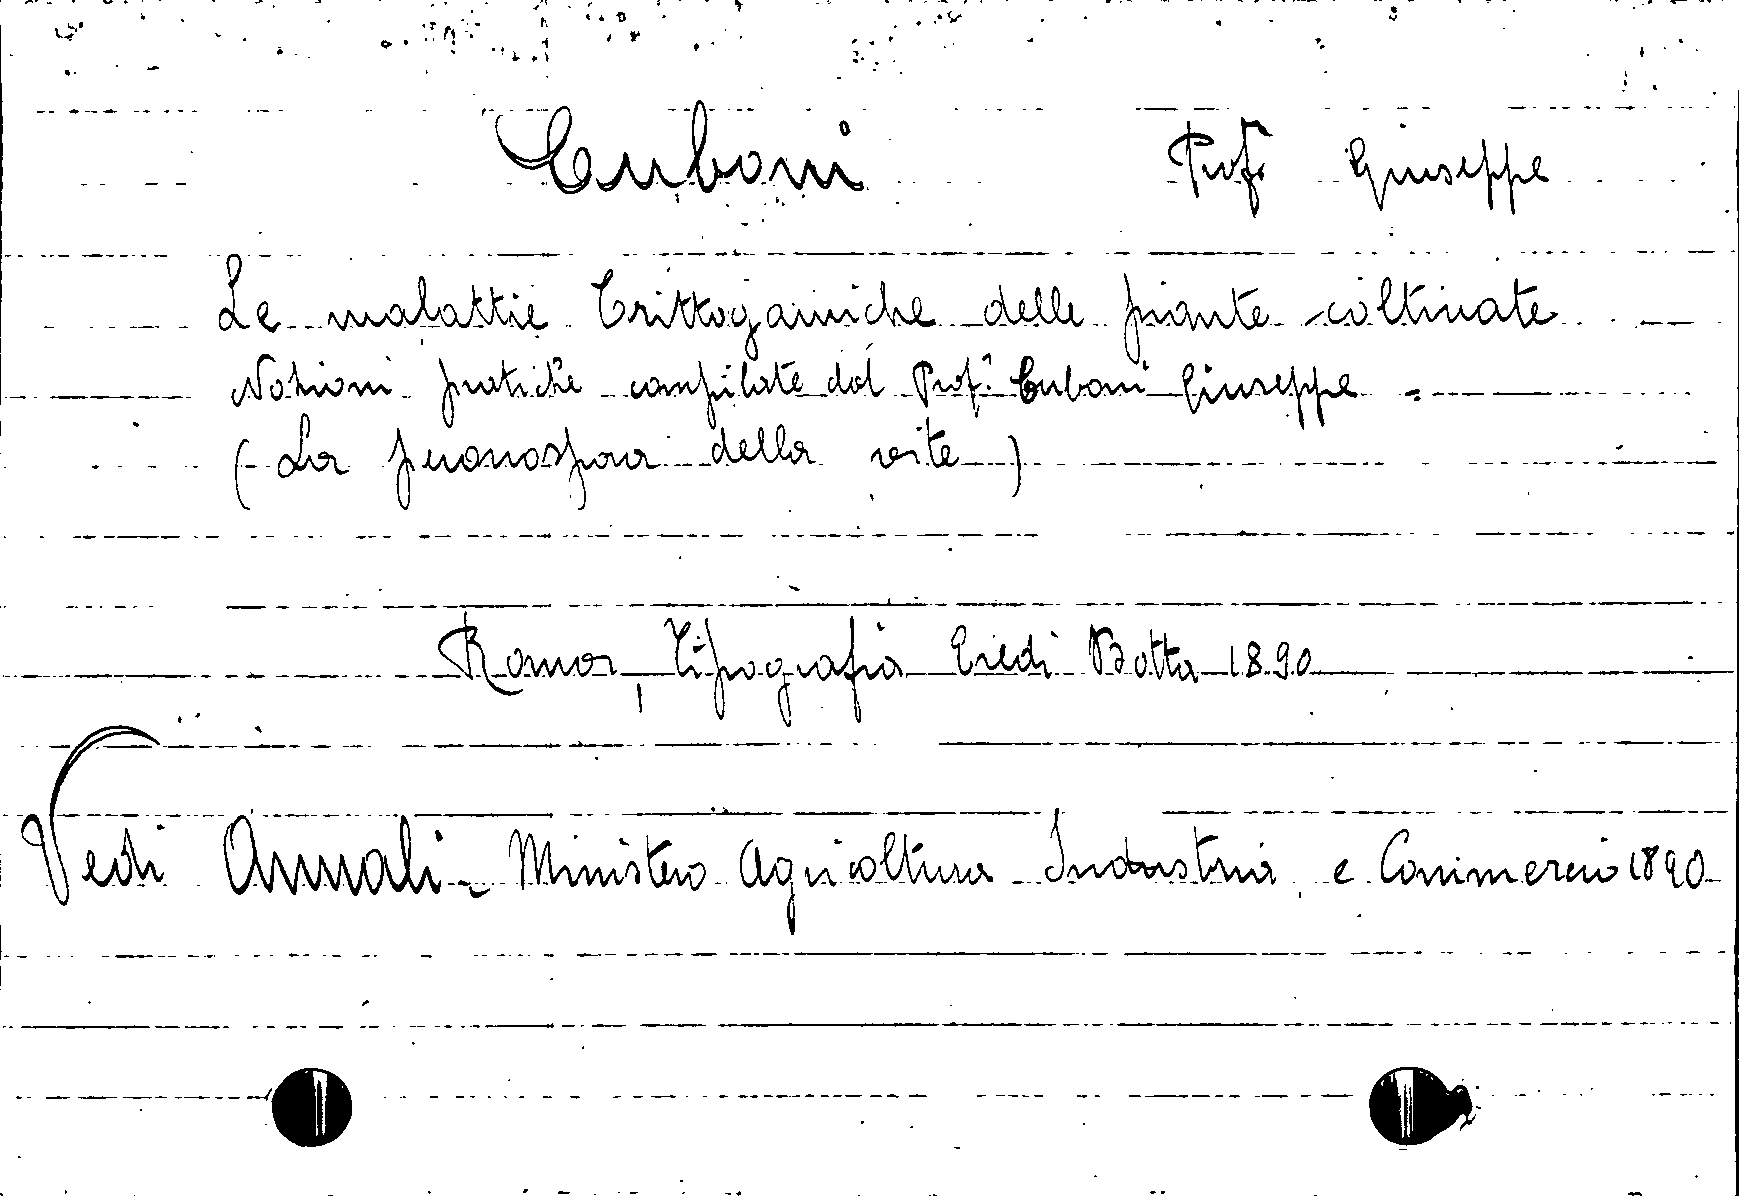 Cuboni Prof. Giuseppe
Le malattie Crittogamiche delle piante coltivate
Nozioni pratiche compilate dal Prof. Cuboni Giuseppe -
( La peronospora della vite )
Roma, Tipografia Eredi Botta 1890
Vedi Annali - Ministero Agricoltura Industria e Commercio 1890